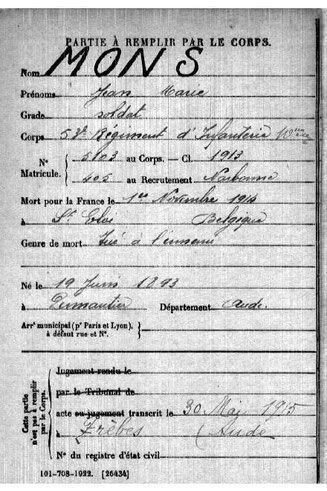 PARTIE À REMPLIR PAR LE CORPS.
Nom MONS
Prénoms Jean Marie
Grade soldat
Corps 53e Régiment d'Infanterie
N° Matricule. 5103 au Corps. — Cl. 1913
405 au Recrutement Narbonne
Mort pour la France le 1er Novembre 1914
à St Eloi Belgique
Genre de mort Tué à l'ennemi
Né le 19 Juin 1893
à Département Aude
Arrt municipal (pr Paris et Lyon), à défaut rue et N°.
Cette partie n'est pas à remplir par le Corps.
Jugement rendu le
par le Tribunal de
acte ou jugement transcrit le 30 Mai 1915
à Trèbes (Aude)
N° du registre d'état civil
101-708-1922. [26434]